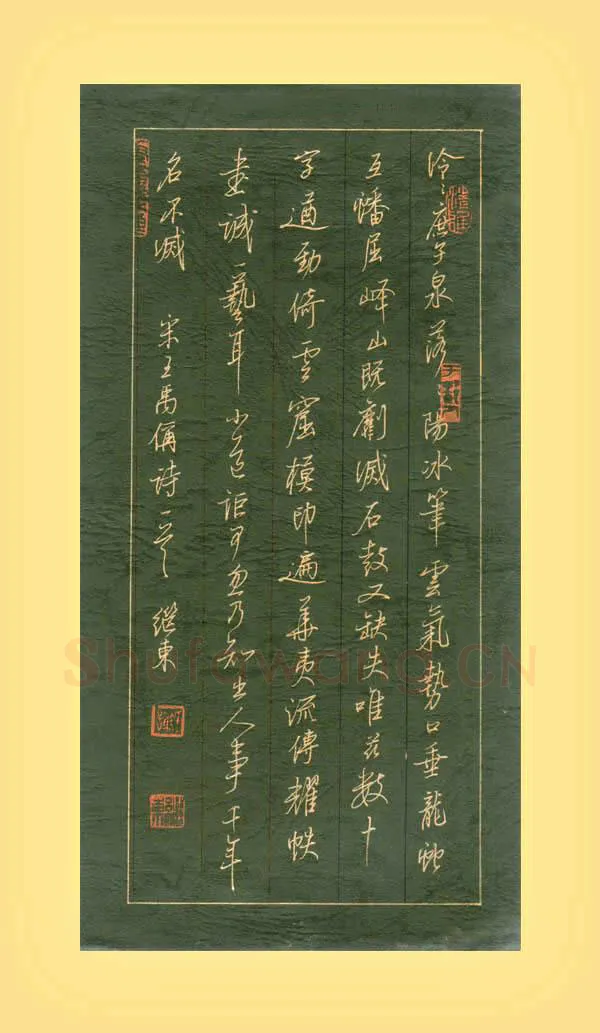 泠〻庶子泉落〻陽冰筆雲氣勢口垂龍蛇
互蟠屈峄山既劚滅石鼓又缺失唯茲數十
字遒勁倚雲窟模印遍華夷流傳耀帙
書誠一藝耳小道詎可忽乃知出人事千年
名不滅 宋王禹偁詩一首 继東
Shufawang.CN